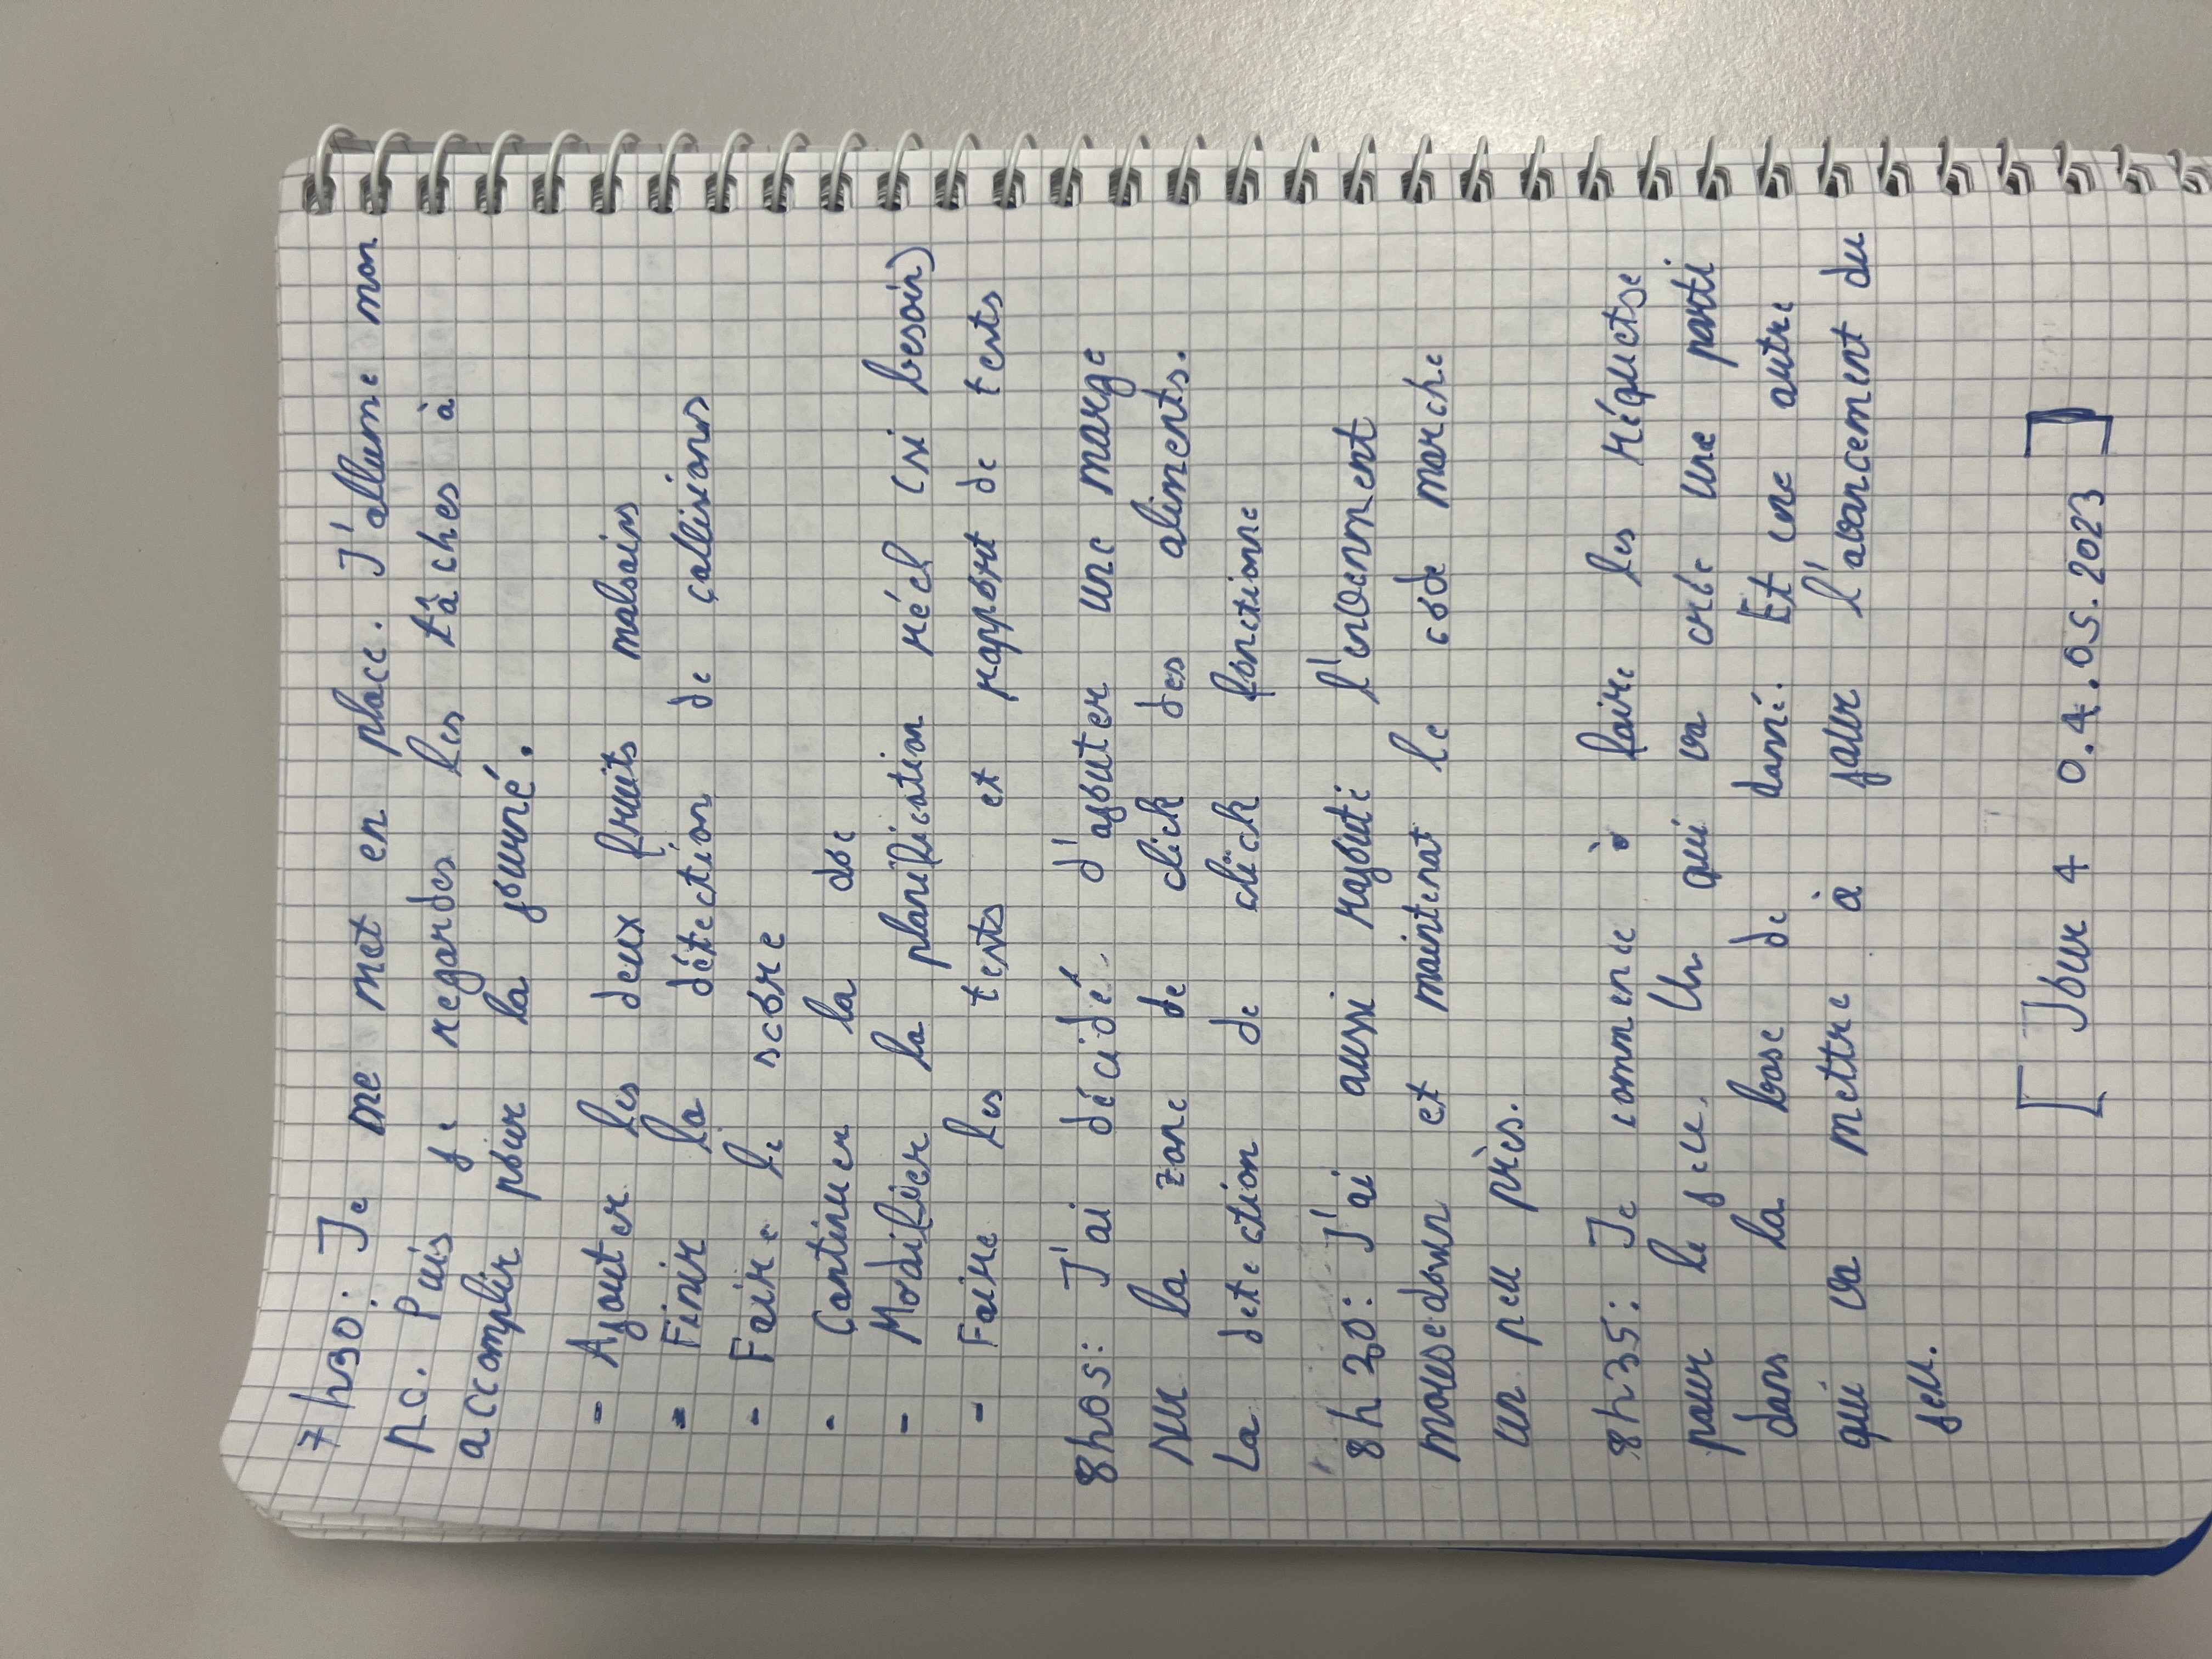 7h30: Je me met en place. J'allume mon
pc. Puis je regardes les tâches à
accomplir pour la journé.
- Ajouter les deux fruits malsains
- Finir la détection de collisions
- Faire le score
- Continuer la doc
- Modifier la planification réel (si besoin)
- Faire les tests et rapport de tests
8h05: J'ai décidé d'ajouter une marge
sur la zone de click des aliments.
La detection de click fonctionne
8h20: J'ai aussi rajouté l'envenment
mousedown et maintenat le code marche
un peu près.
8h35: Je commence à faire les réquetse
pour le jeu. Un qui va crée une parti
dans la base de donné. Et une autre
qui va mettre à jour l'avancement du
jeu.
[ Jour 4 0.4.05.2023 ]